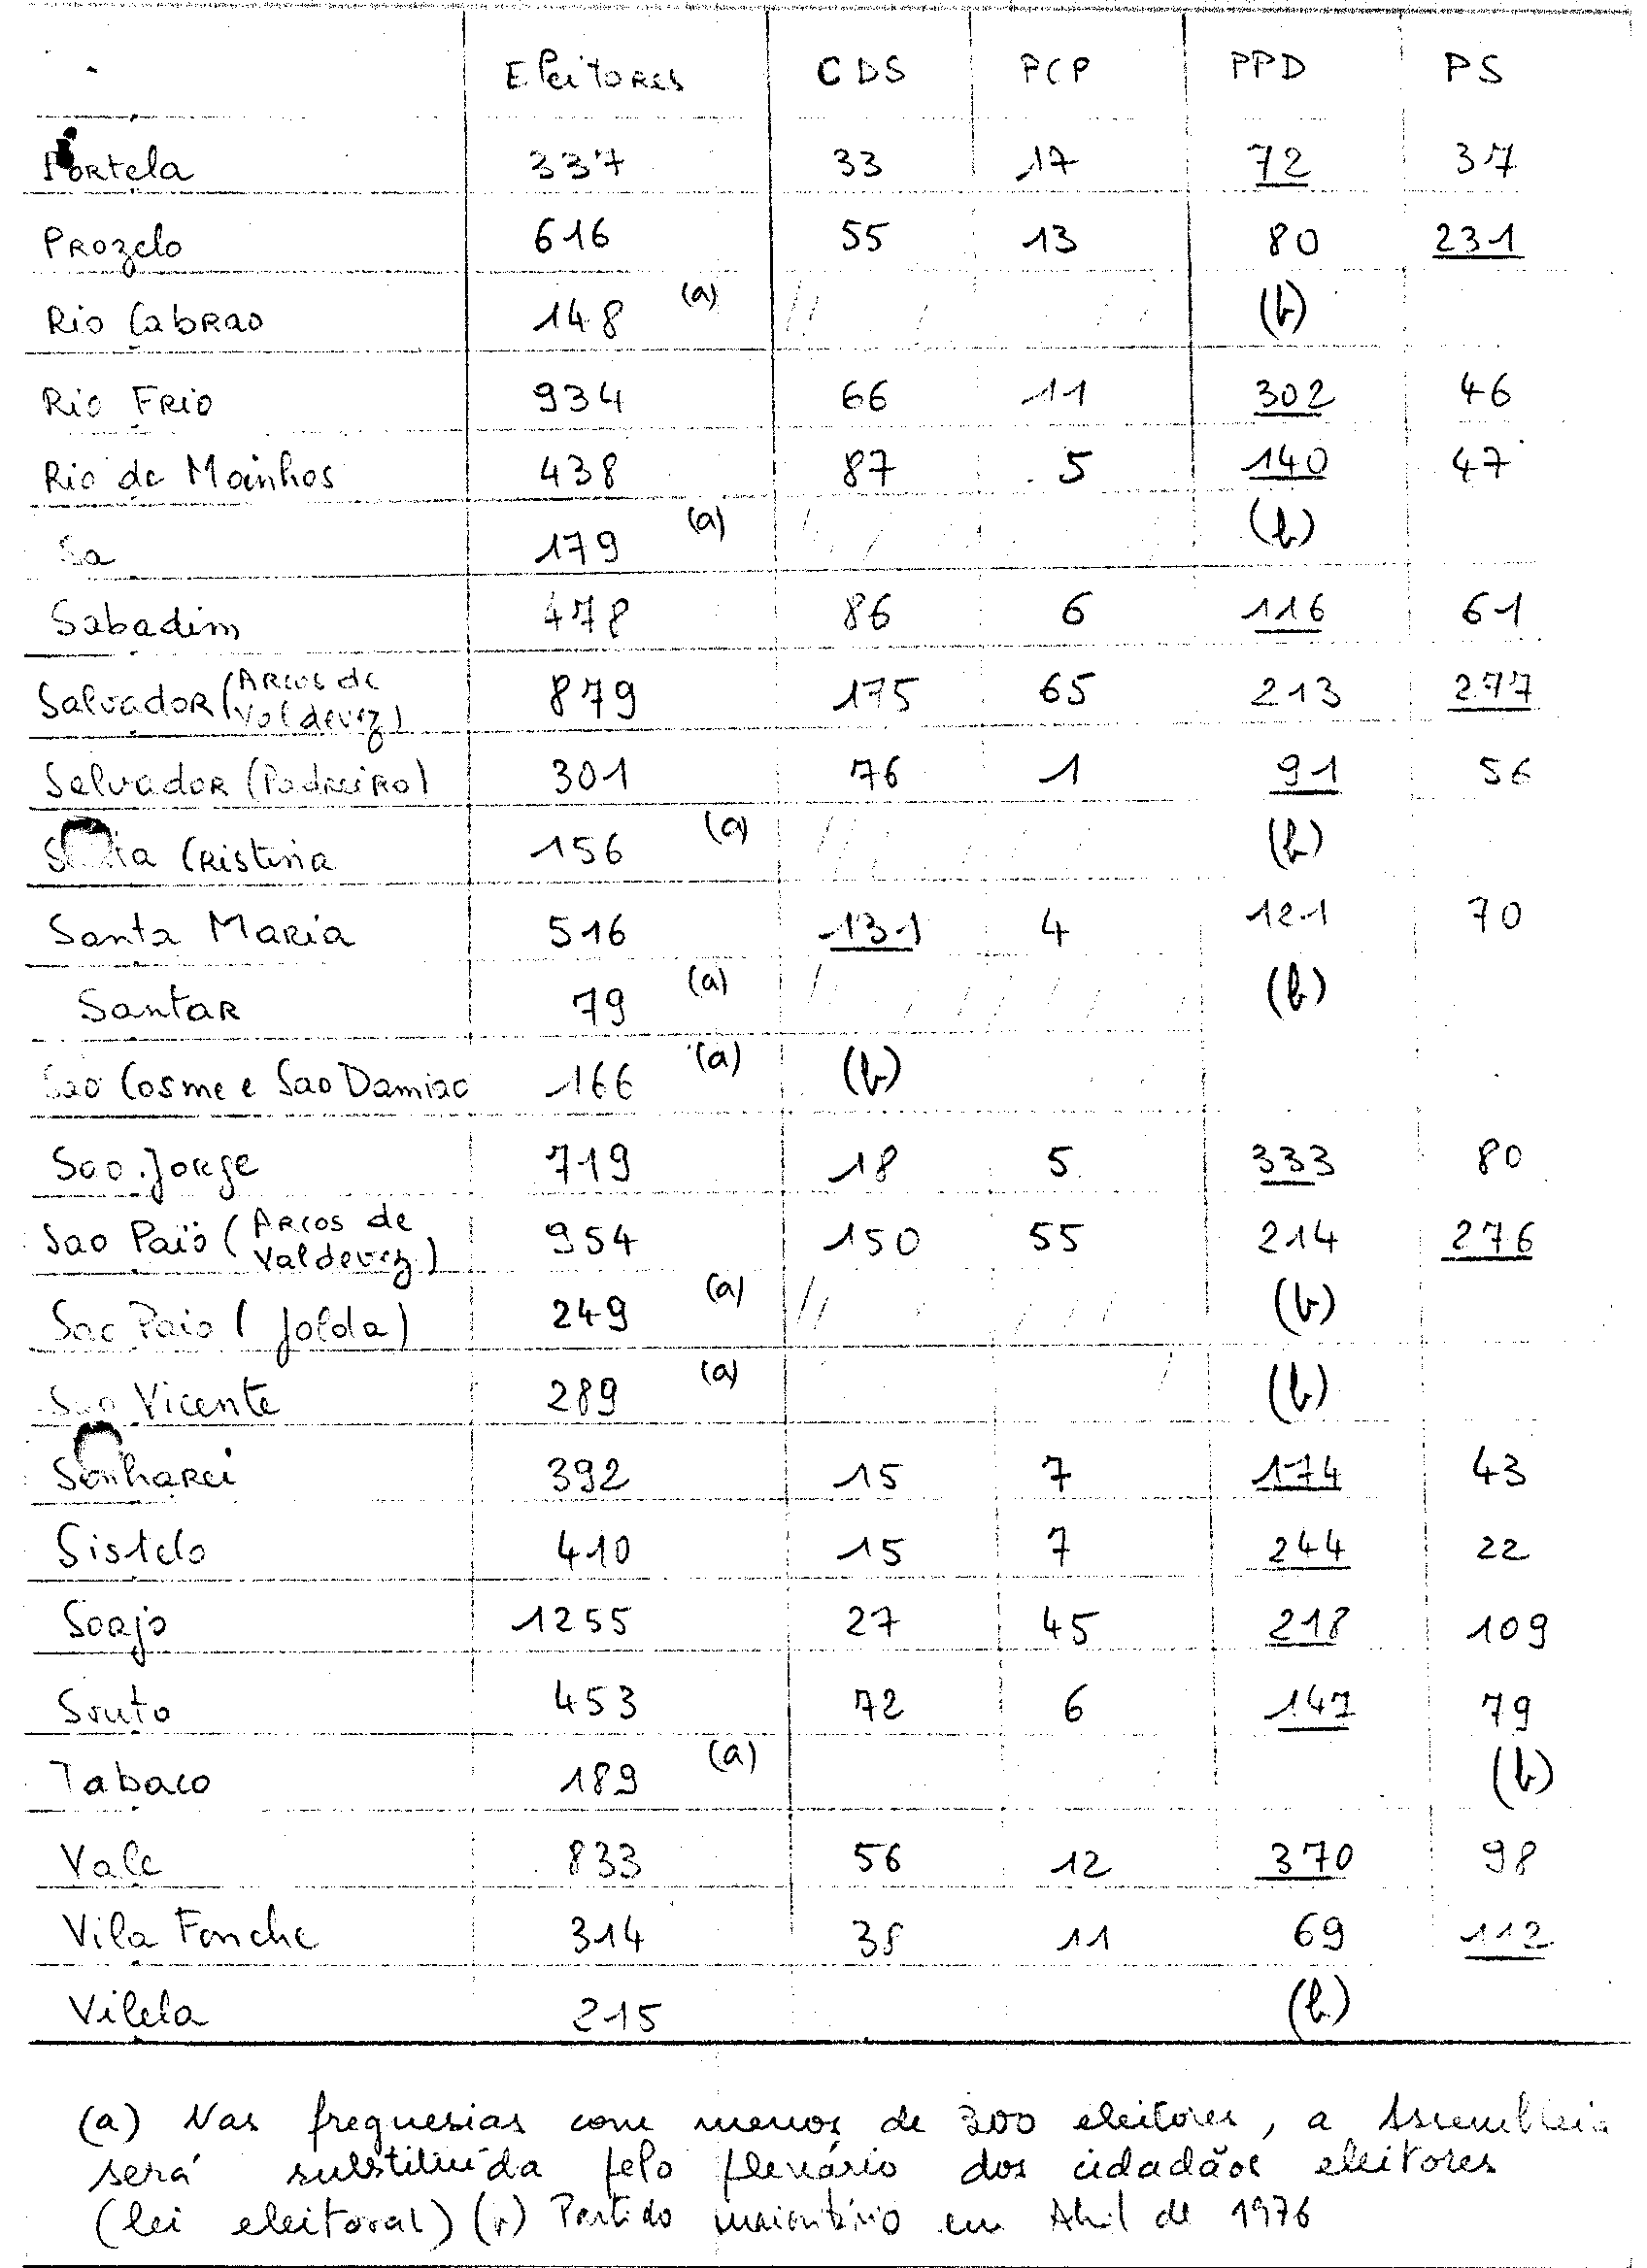 Eleitores CDS PCP PPD PS
Portela 337 33 17 72 37
Prozelo 616 55 13 80 231
Rio Cabrao 148 (a) (b)
Rio Frio 934 66 11 302 46
Rio de Moinhos 438 87 5 140 47
Sa 179 (a) (b)
Sabadim 478 86 6 116 61
Salvador (Arcos de Valdevez) 879 175 65 213 277
Salvador (Padreiro) 301 76 1 91 56
Santa Cristina 156 (a) (b)
Santa Maria 516 131 4 121 70
Santar 79 (a) (b)
Sao Cosme e Sao Damiao 166 (a) (b)
Sao Jorge 719 18 5 333 80
Sao Paio (Arcos de Valdevez) 954 150 55 214 276
Sao Paio (Jolda) 249 (a) (b)
Sao Vicente 289 (a) (b)
Senharei 392 15 7 174 43
Sistelo 410 15 7 244 22
Soajo 1255 27 45 218 109
Souto 453 72 6 147 79
Tabaco 189 (a) (b)
Vale 833 56 12 370 98
Vila Fonche 314 38 11 69 112
Vilela 215 (b)
(a) Nas freguesias com menos de 300 eleitores, a Assembleia
será substituída pelo plenário dos cidadãos eleitores
(lei eleitoral) (b) Partido maioritário em Abril de 1976